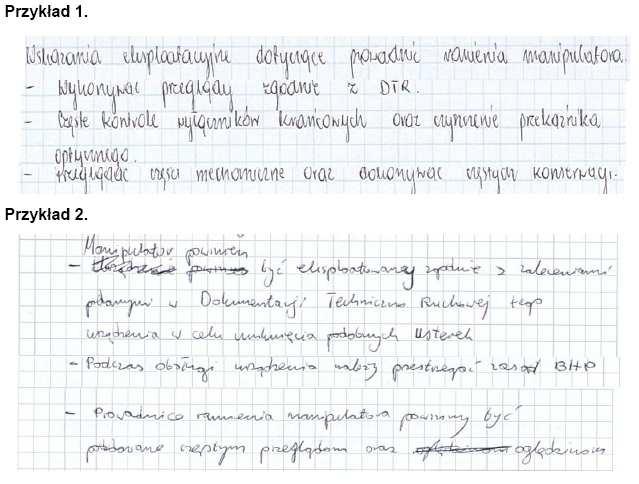 Przykład 1.
Wskazania eksploatacyjne dotyczące prowadnic ramienia manipulatora.
- Wykonywać przeglądy zgodnie z DTR.
- Częste kontrole wyłączników krańcowych oraz czyszczenie przekaźnika
optycznego.
- przeglądać części mechaniczne oraz dokonywać częstych konserwacji.
Przykład 2.
Manipulator powinien
- być eksploatowany zgodnie z zaleceniami
podanymi w Dokumentacji Techniczno Ruchowej tego
urządzenia w celu uniknięcia podobnych usterek
- Podczas obsługi urządzenia należy przestrzegać zasad BHP
- Prowadnice ramienia manipulatora powinny być
poddawane częstym przeglądom oraz oględzinom